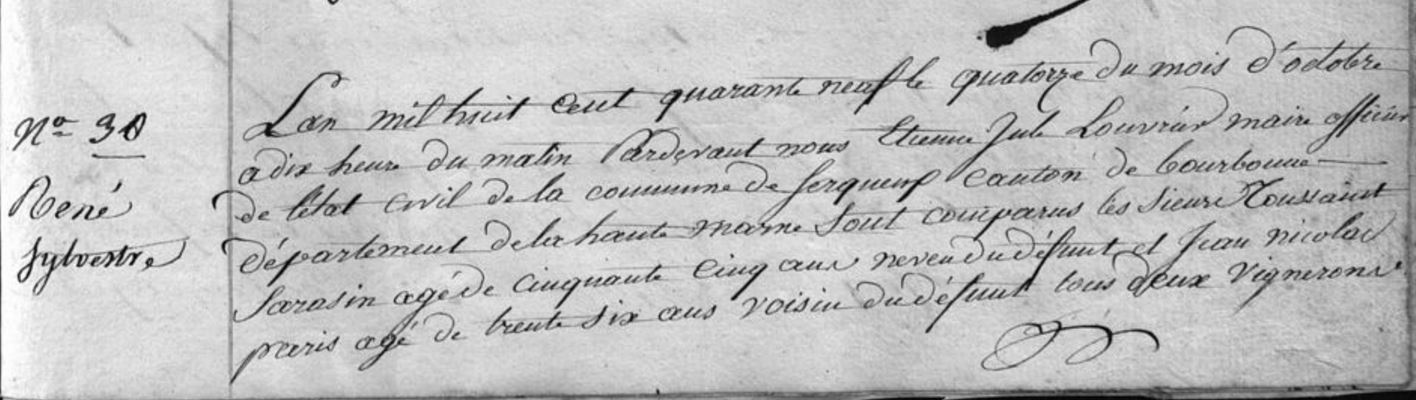 No 30
René
Sylvestre
Lan mil huit cent quarante neuf le quatorze du mois d'octobre
a dix heure du matin Pardevant nous Etienne Jule Louvrier maire officier
de l'état civil de la commune de Serqueux canton de bourbonne
département de la haute marne sont comparus les sieurs Toussaint
Sarasin agé de cinquante cinq ans neveu du défunt et Jean nicolas
paris agé de trente six ans voisin du défunt tous deux vignerons